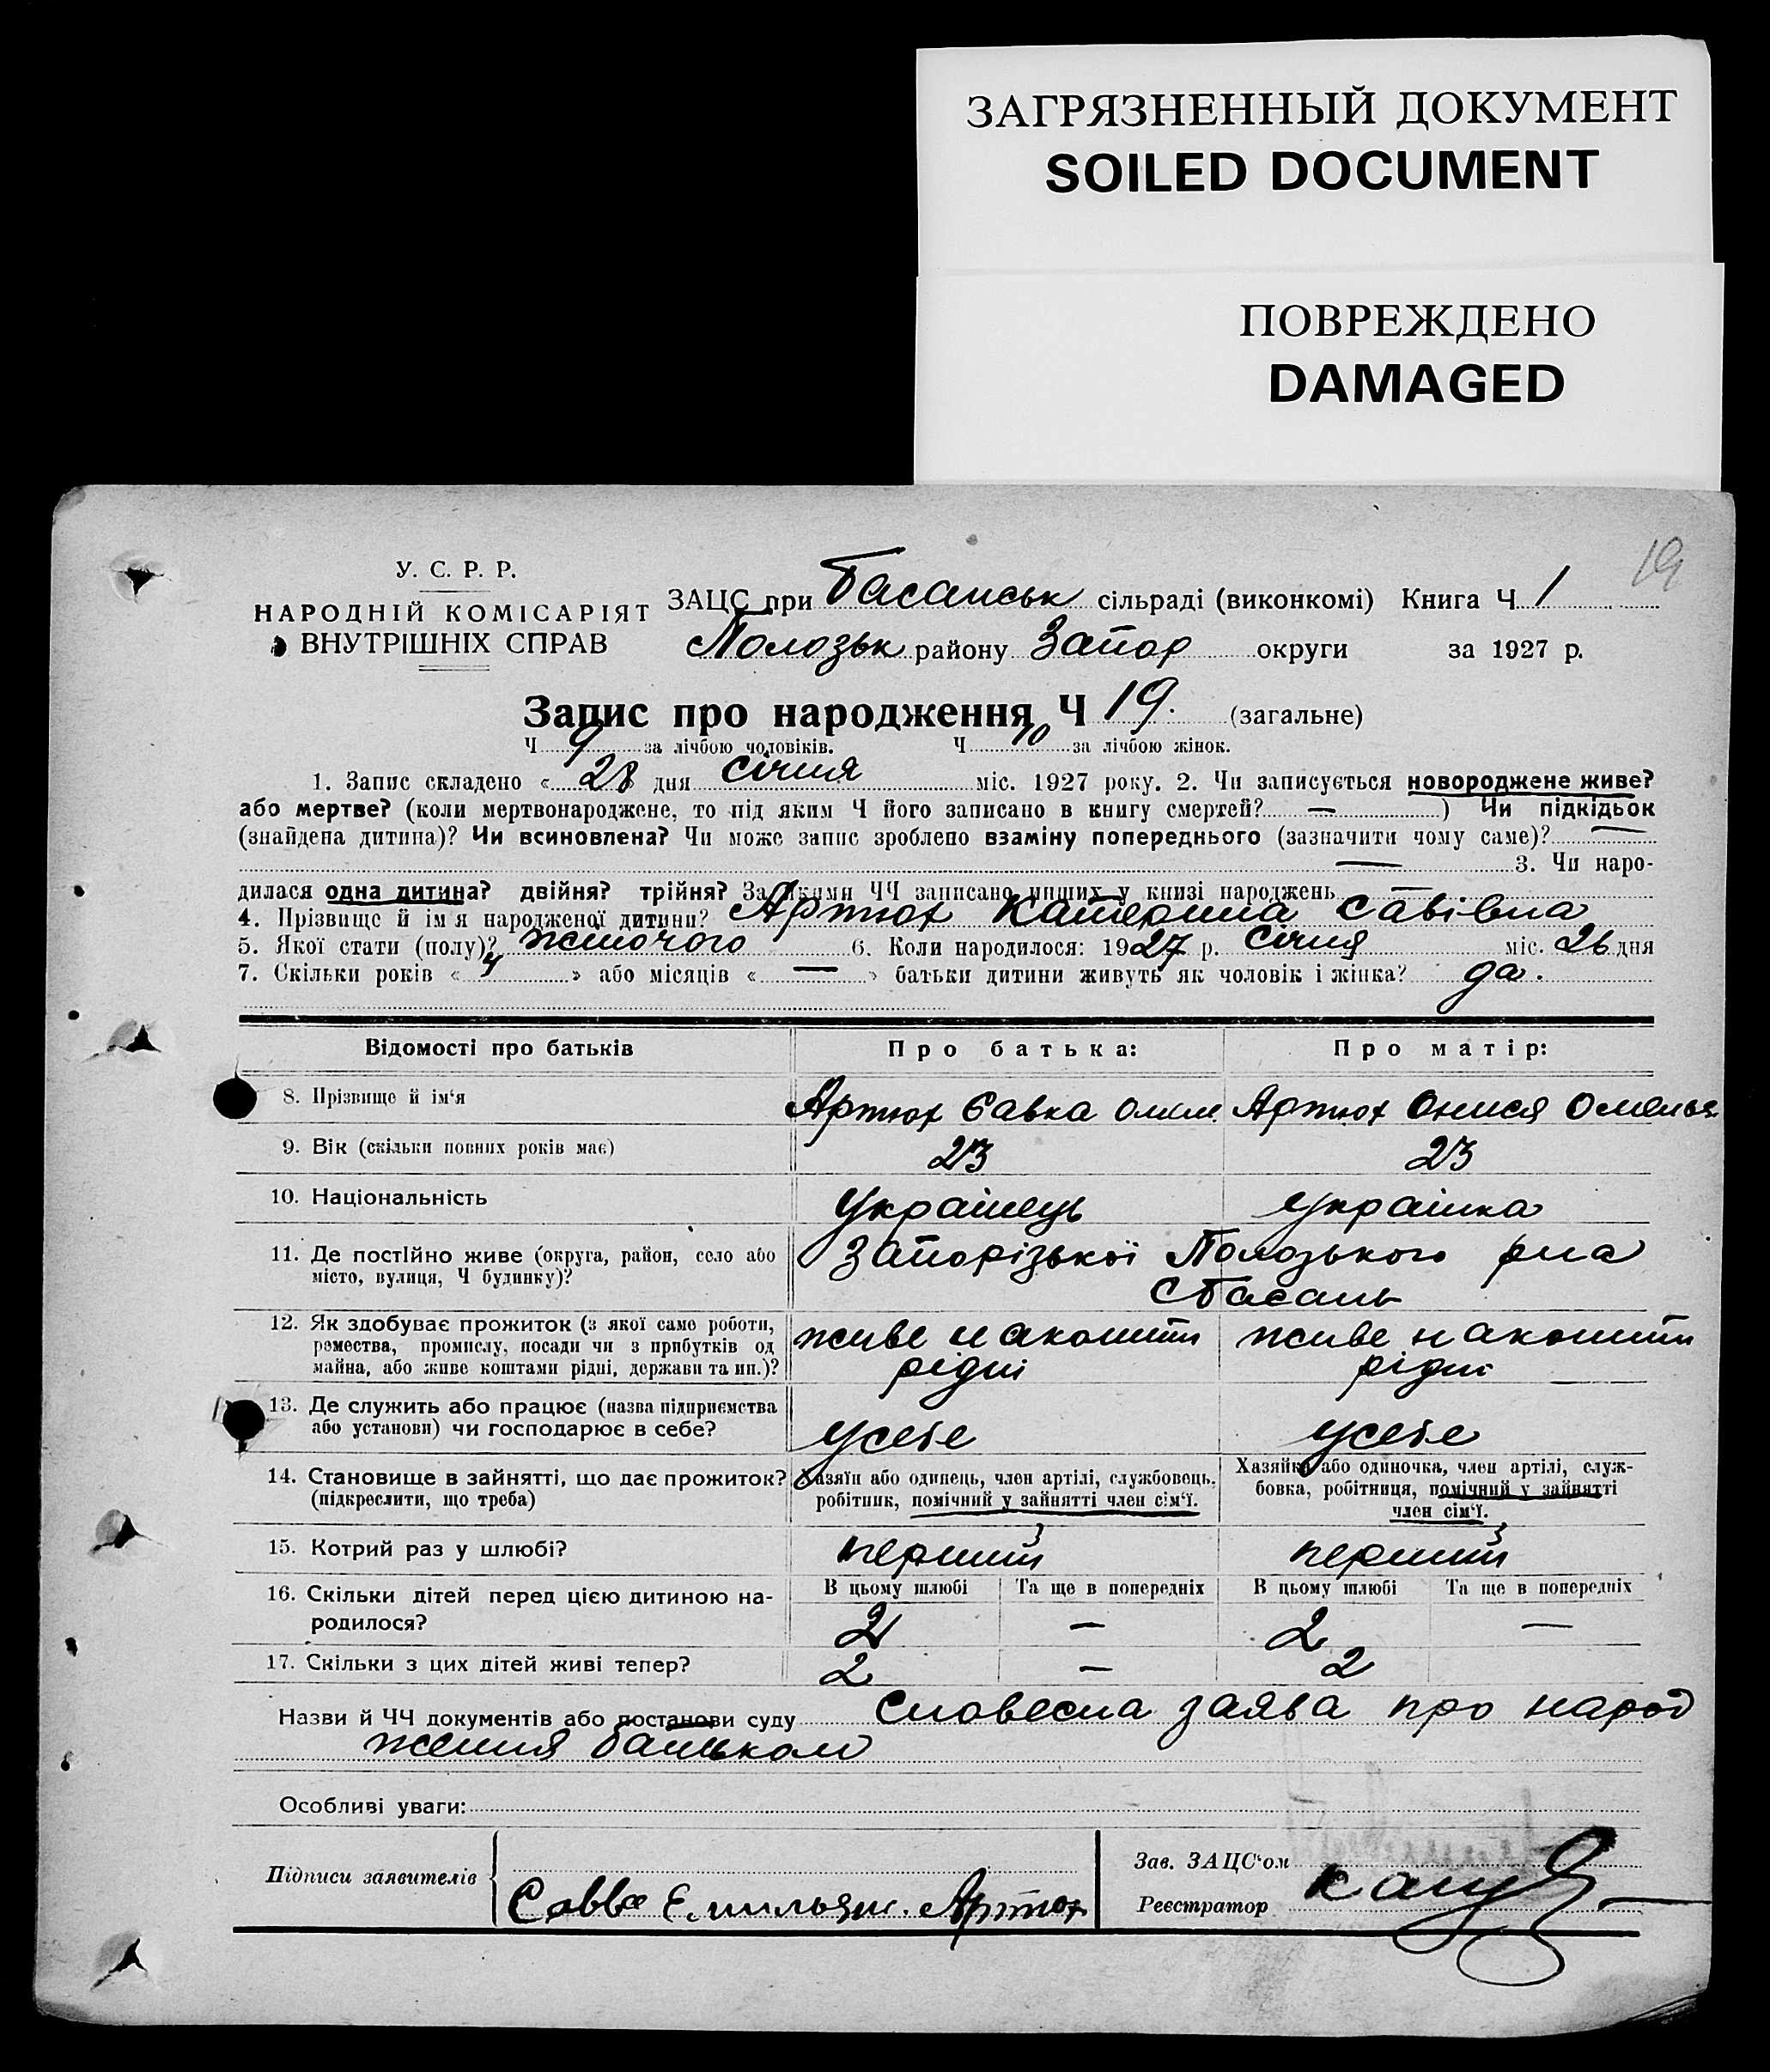 ЗАГРЯЗНЕННЫЙ ДОКУМЕНТ
SOILED DOCUMENT
ПОВРЕЖДЕНО
DAMAGED
19
У. С. Р. Р.
НАРОДНІЙ КОМІСАРІЯТ
ВНУТРІШНІХ СПРАВ
ЗАЦС при Басанськ сільраді (виконкомі) Книга Ч 1
Полозьк району Запор округи за 1927 р.
Запис про народження Ч 19. (загальне)
Ч 9 за лічбою чоловіків. Ч 10 за лічбою жінок.
1. Запис складено « 28 » дня Січня міс. 1927 року. 2. Чи записується новороджене живе?
або мертве? (коли мертвонароджене, то під яким Ч його записано в книгу смертей? — ) Чи підкідьок
(знайдена дитина)? Чи всиновлена? Чи може запис зроблено взаміну попереднього (зазначити чому саме)? —
— 3. Чи наро-
дилася одна дитина? двійня? трійня? За якими ЧЧ записано инших у книзі народжень —
4. Прізвище й ім'я народженої дитини? Артюх Катерина Савівна
5. Якої стати (полу)? жіночого 6. Коли народилося: 1927 р. Січня міс. 26 дня
7. Скільки років « 4 » або місяців « — » батьки дитини живуть як чоловік і жінка? да.
Відомості про батьків Про батька: Про матір:
8. Прізвище й ім'я Артюх Савка Омел. Артюх Онися Омельян
9. Вік (скільки повних років має) 23 23
10. Національність Українець Українка
11. Де постійно живе (округа, район, село або Запорізької Полозького рна
місто, вулиця, Ч будинку)? с Басань
12. Як здобуває прожиток (з якої само роботи, живе на кошти живе на кошти
ремества, промислу, посади чи з прибутків од рідні рідні
майна, або живе коштами рідні, держави та ин.)?
13. Де служить або працює (назва підприємства
або установи) чи господарює в себе? усебе усебе
14. Становище в зайнятті, що дає прожиток? Хазяїн або одинець, член артілі, службовець, Хазяйка або одиночка, член артілі, служ-
(підкреслити, що треба) робітник, помічний у зайнятті член сім'ї. бовка, робітниця, помічний у зайнятті
член сім'ї.
15. Котрий раз у шлюбі? перший перший
16. Скільки дітей перед цією дитиною на- В цьому шлюбі Та ще в попередніх В цьому шлюбі Та ще в попередніх
родилося? 2 — 2 —
17. Скільки з цих дітей живі тепер? 2 — 2
Назви й ЧЧ документів або постанови суду Словесна заява про народ
ження батьком
Особливі уваги:
Підписи заявителів Савва Емильян. Артюх
Зав. ЗАЦС'ом
Реєстратор